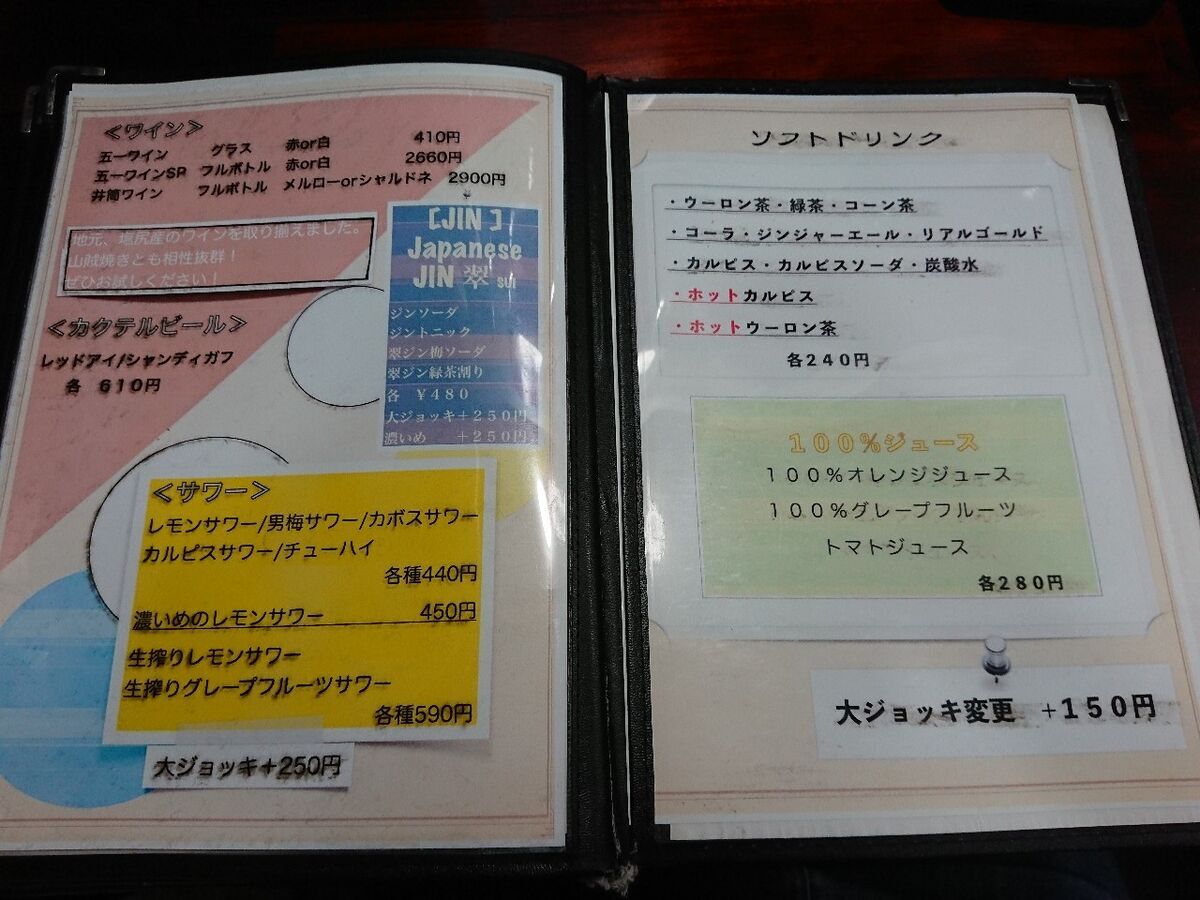 ＜ワイン＞
五一ワイン グラス 赤or白 410円
五一ワインSP フルボトル 赤or白 2660円
井筒ワイン フルボトル メルローorシャルドネ 2900円
地元、塩尻産のワインを取り揃えました。
山賊焼きとも相性抜群！
ぜひお試しください！
＜カクテルビール＞
レッドアイ/シャンディガフ
各 610円
【JIN】
Japanese
JIN 翠 sui
ジンソーダ
ジントニック
翠ジン梅ソーダ
翠ジン緑茶割り
各 ￥480
大ジョッキ＋250円
濃いめ ＋250円
＜サワー＞
レモンサワー/男梅サワー/カボスサワー
カルピスサワー/チューハイ
各種440円
濃いめのレモンサワー 450円
生搾りレモンサワー
生搾りグレープフルーツサワー
各種590円
大ジョッキ＋250円
ソフトドリンク
・ウーロン茶・緑茶・コーン茶
・コーラ・ジンジャーエール・リアルゴールド
・カルピス・カルピスソーダ・炭酸水
・ホットカルピス
・ホットウーロン茶
各240円
100％ジュース
100％オレンジジュース
100％グレープフルーツ
トマトジュース
各280円
大ジョッキ変更 +150円